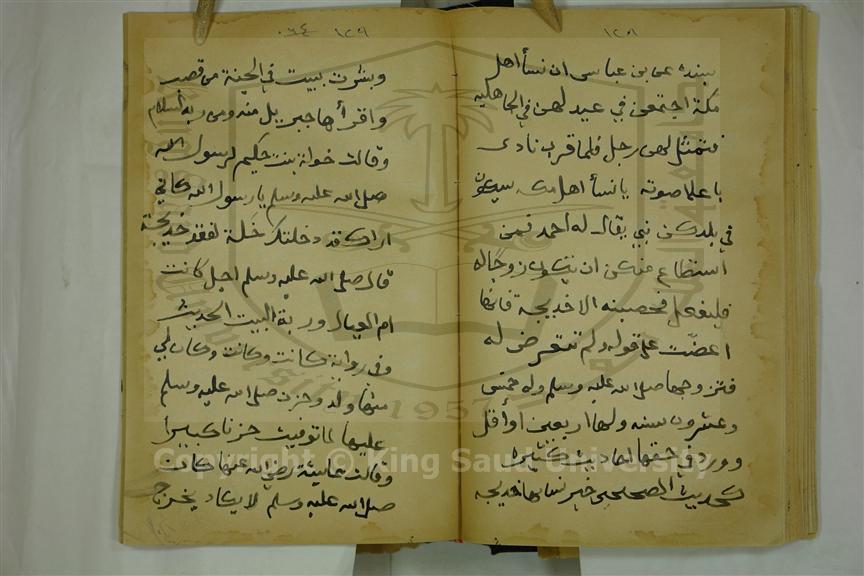 ١٢٥١
بسنده عن بن عباس ان نسأ اهل
مكة اجتمعن في عيد لهن في الجاهلية
فتمثل لهن رجل فلما قرب نادى
باعلا صوته يا نسأ اهل مكه سيكون
في بلدكن نبي يقال له احمد فمن
استطاع منكن ان تكون زوجا له
فلتفعل فحصبنه الا خديجة فانها
اعضت على قوله ولم تتعرض له
فتزوجها صلى الله عليه وسلم وله خمس
وعشرون سنه ولها اربعين او أقل
وورد في حقها احاديث كثيره
كحديث الصحيحين خير نسائها خديجه
١٢٥٩ ٠٦٤
وبشرت ببيت في الجنة من قصب
واقرأها جبريل منه ومن ربه السلام
وقالت خولة بنت حكيم لرسول الله
صلى الله عليه وسلم يا رسول الله كاني
اراك قد دخلتك خلة لفقد خديجة
قال صلى الله عليه وسلم اجل كانت
ام العيال وربة البيت الحديث
وفي رواية كانت وكانت وكان لي
منها ولد وحزن صلى الله عليه وسلم
عليها لما توفيت حزنا كبيرا
وقالت عايشة رضي الله عنها كانت
صلى الله عليه وسلم لا يكاد يخرج
1957
Copyright © King Saud University